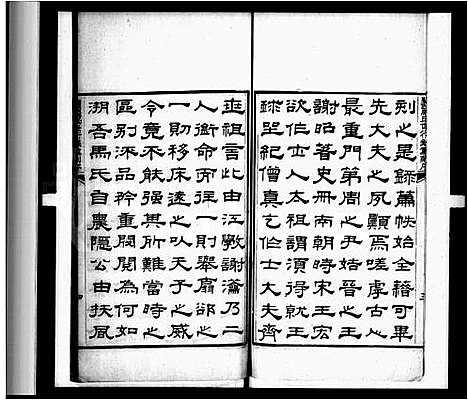 刻之是錄蕭帙始全繙可畢
先大夫之夙願焉嗟虖古之
最重門第周之尹姞晉之王
謝昭著史冊南朝時宋王宏
欲作士人太祖謂須得就王
球坐紀僧真乞作士大夫齊
世祖言此由江斆謝瀹乃二
人銜命而往一則舉扇卻之
一則移床遠之以天子之威
令竟不能強其所難當時之
區別流品矜重閥閱為何如
溯吾馬氏自農隱公由扶風